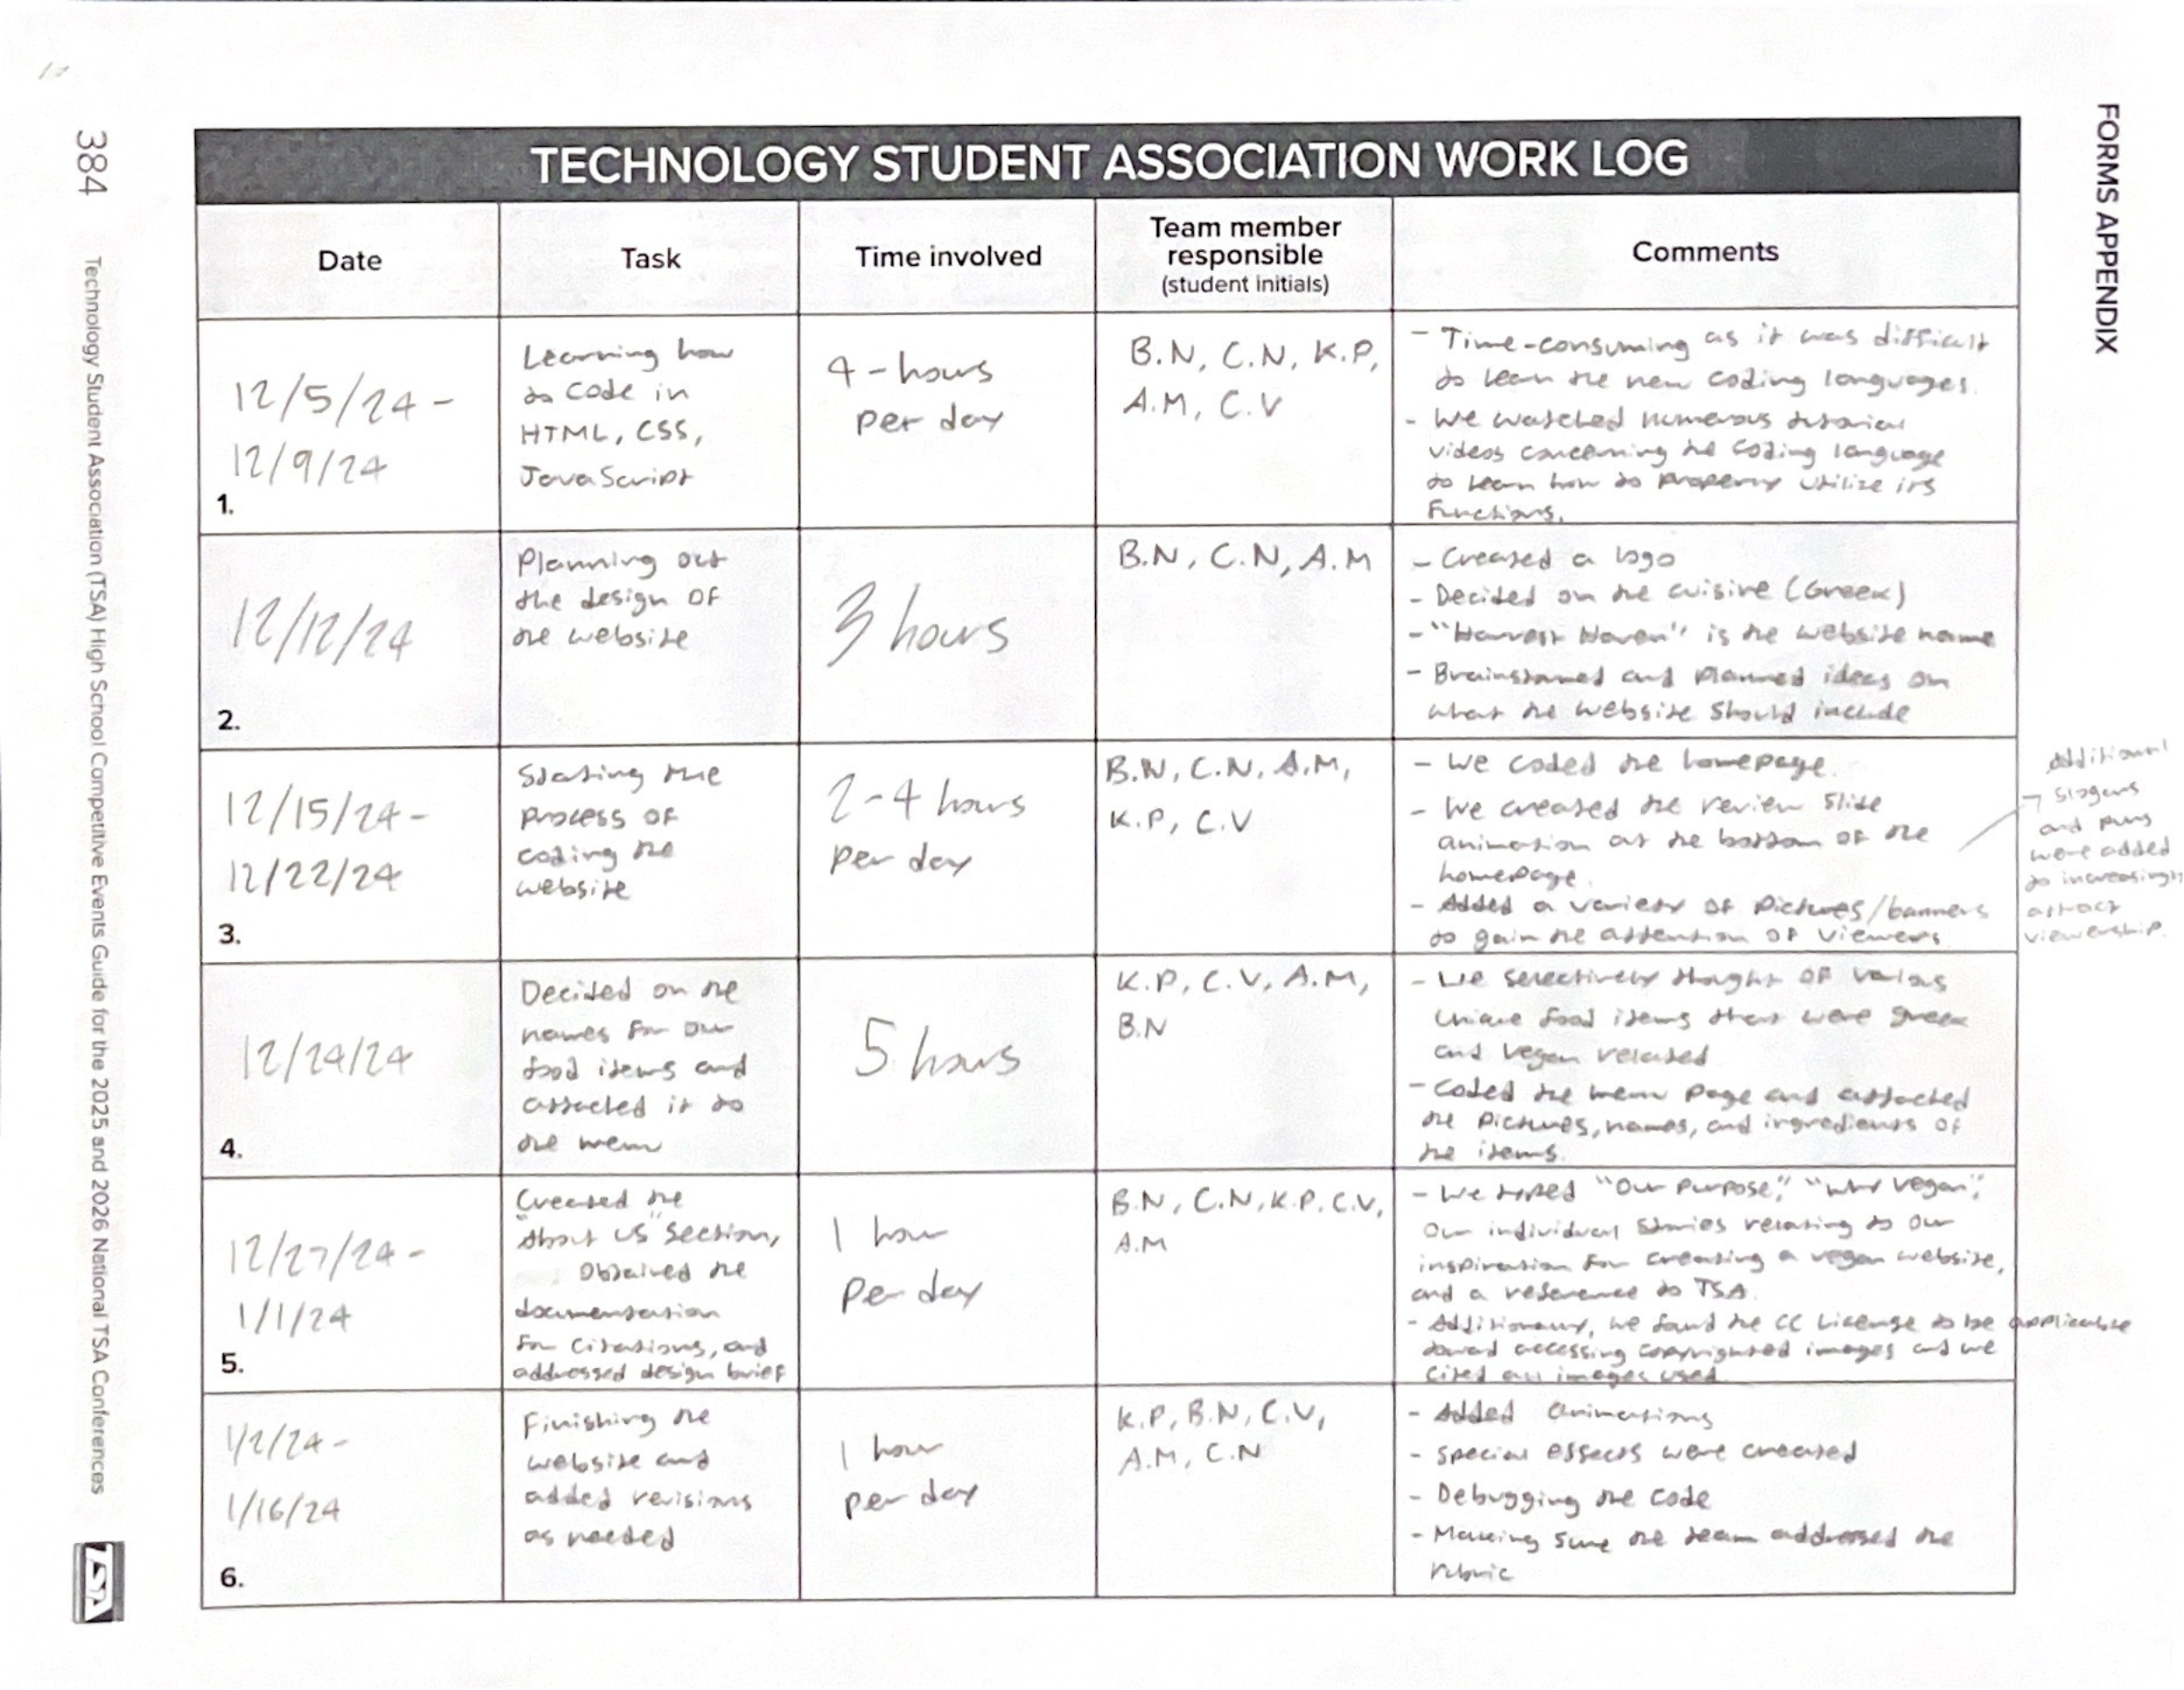 384
Technology Student Association (TSA) High School Competitive Events Guide for the 2025 and 2026 National TSA Conferences
TSA
FORMS APPENDIX
TECHNOLOGY STUDENT ASSOCIATION WORK LOG
Date
Task
Time involved
Team member
responsible
(student initials)
Comments
12/5/24 -
12/9/24
1.
Learning how
to code in
HTML, CSS,
JavaScript
4-hours
per day
B.N, C.N, K.P,
A.M, C.V
- Time-consuming as it was difficult
to learn the new coding languages.
- We watched numerous tutorial
videos concerning the coding language
to learn how to properly utilize its
functions.
12/12/24
2.
Planning out
the design of
the website
3 hours
B.N, C.N, A.M
- Created a logo
- Decided on the cuisine (Greek)
- "Harvest Haven" is the website name
- Brainstormed and planned ideas on
what the website should include
12/15/24 -
12/22/24
3.
Stating the
process of
coding the
website
2-4 hours
per day
B.N, C.N, A.M,
K.P, C.V
- We coded the homepage.
- We created the review slide
animation at the bottom of the
homepage.
- Added a variety of pictures/banners
to gain the attention of viewers
Additional
slogans
and puns
were added
to increasingly
attract
viewership.
12/24/24
4.
Decided on the
names for our
food items and
attached it to
the menu
5 hours
K.P, C.V, A.M,
B.N
- We selectively thought of various
unique food items that were greek
and vegan related
- Coded the menu page and attached
the pictures, names, and ingredients of
the items.
12/27/24 -
1/1/24
5.
Created the
"About US" section,
Obtained the
documentation
for citations, and
addressed design brief
1 hour
per day
B.N, C.N, K.P, C.V,
A.M
- We typed "Our Purpose," "Why Vegan",
our individual stories relating to our
inspiration for creating a vegan website,
and a reference to TSA.
- Additionally, we found the CC License to be applicable
toward accessing copyrighted images and we
cited all images used.
1/2/24 -
1/16/24
6.
Finishing the
website and
added revisions
as needed
1 hour
per day
K.P, B.N, C.V,
A.M, C.N
- Added animations
- Special effects were created
- Debugging the code
- Making sure the team addressed the
rubric